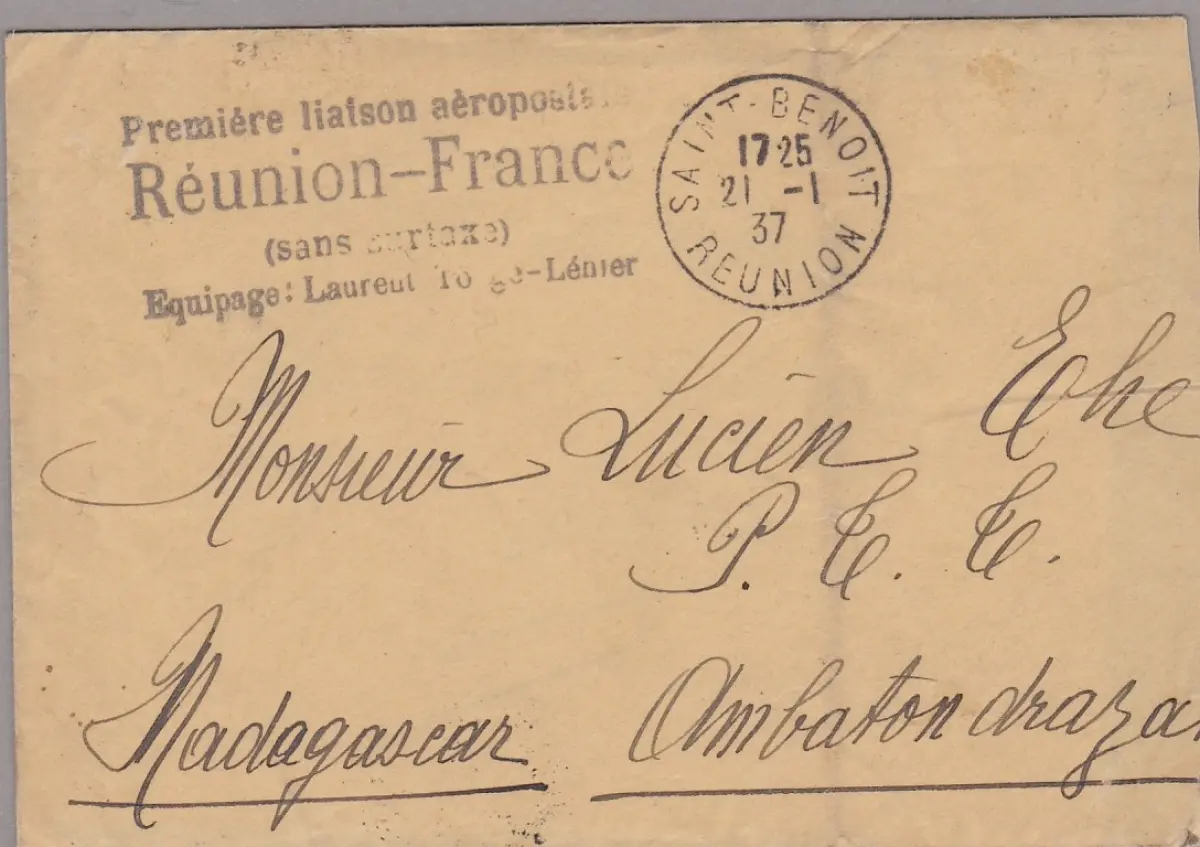 Première liaison aéroposta
Réunion-France
(sans surtaxe)
Equipage: Laurent To ge-Lénier
SAINT-BENOIT
17 25
21 -1
37
REUNION
Monsieur Lucien Eke
P. T. T.
Madagascar Ambatondraza